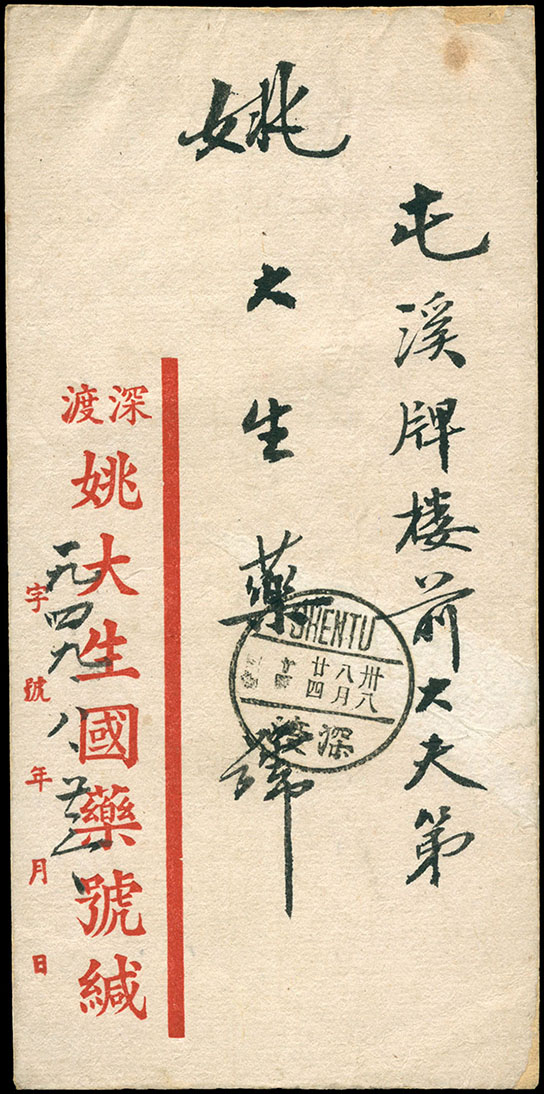 屯溪牌楼前大夫第
姚大生藥號
SHENTU
卅八
八月
廿四
深渡
深渡
姚大生國藥號緘
一九四九、八、廿三、
字號年月日